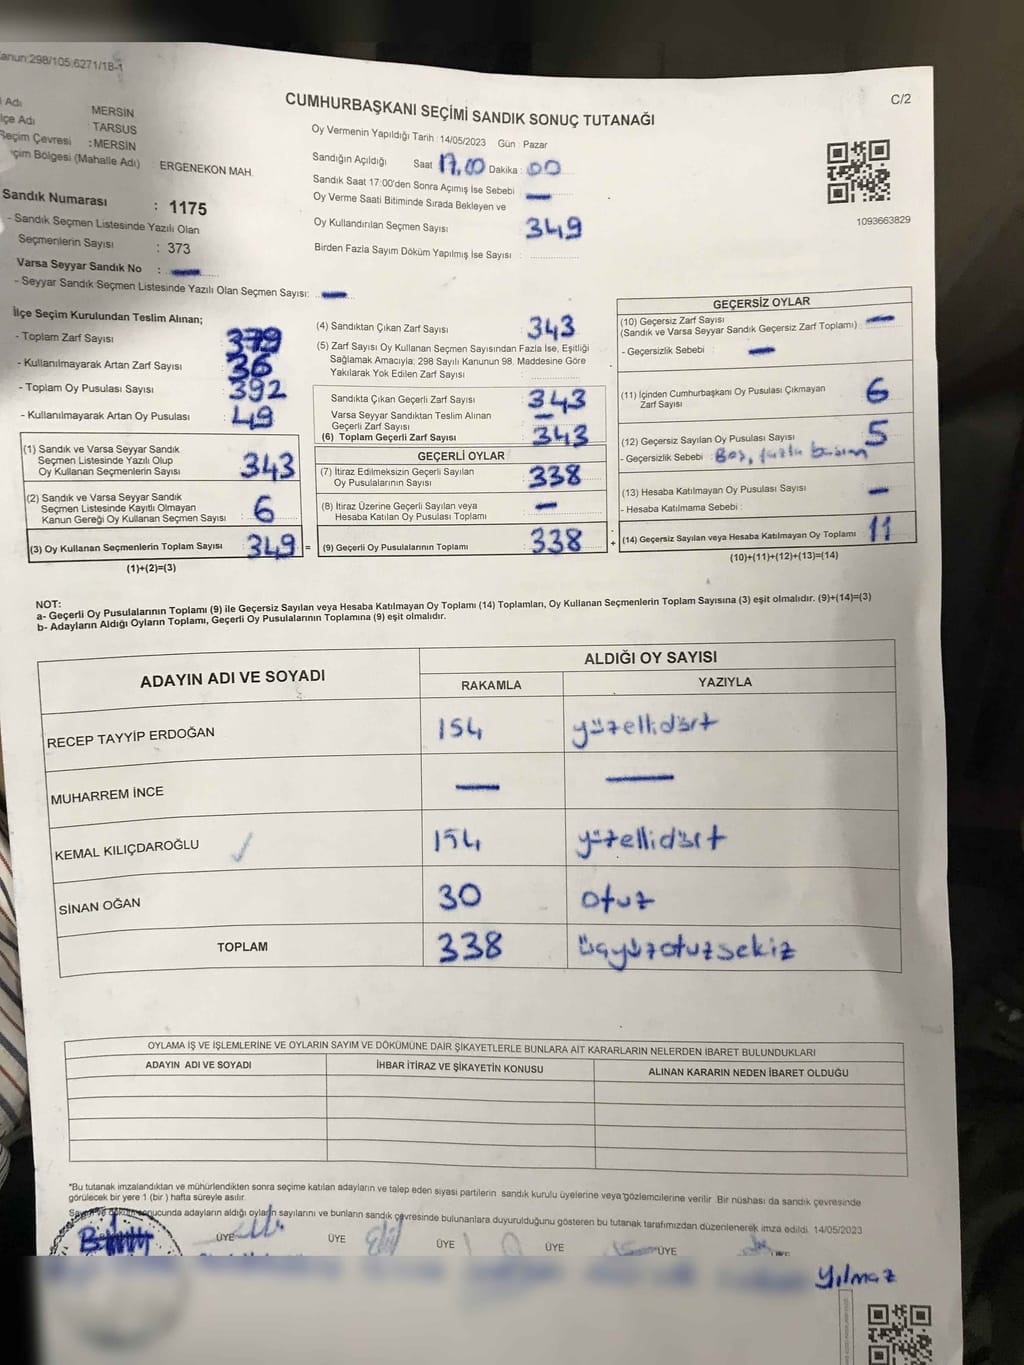 anun:298/105;6271/18-1
C/2
CUMHURBAŞKANI SEÇİMİ SANDIK SONUÇ TUTANAĞI
Adı MERSİN
lçe Adı TARSUS
Seçim Çevresi : MERSİN
çim Bölgesi (Mahalle Adı) ERGENEKON MAH.
Oy Vermenin Yapıldığı Tarih : 14/05/2023 Gün : Pazar
Sandığın Açıldığı Saat 17.00 Dakika : 00
Sandık Saat 17:00'den Sonra Açımış İse Sebebi : —
Oy Verme Saati Bitiminde Sırada Bekleyen ve
Oy Kullandırılan Seçmen Sayısı : 349
Birden Fazla Sayım Döküm Yapılmış İse Sayısı :
1093663829
Sandık Numarası : 1175
- Sandık Seçmen Listesinde Yazılı Olan
Seçmenlerin Sayısı : 373
Varsa Seyyar Sandık No : —
- Seyyar Sandık Seçmen Listesinde Yazılı Olan Seçmen Sayısı: —
İlçe Seçim Kurulundan Teslim Alınan;
- Toplam Zarf Sayısı : 379
- Kullanılmayarak Artan Zarf Sayısı : 36
- Toplam Oy Pusulası Sayısı : 392
- Kullanılmayarak Artan Oy Pusulası : 49
(1) Sandık ve Varsa Seyyar Sandık
Seçmen Listesinde Yazılı Olup
Oy Kullanan Seçmenlerin Sayısı : 343
(2) Sandık ve Varsa Seyyar Sandık
Seçmen Listesinde Kayıtlı Olmayan
Kanun Gereği Oy Kullanan Seçmen Sayısı : 6
(3) Oy Kullanan Seçmenlerin Toplam Sayısı : 349 =
(1)+(2)=(3)
(4) Sandıktan Çıkan Zarf Sayısı : 343
(5) Zarf Sayısı Oy Kullanan Seçmen Sayısından Fazla İse, Eşitliği
Sağlamak Amacıyla; 298 Sayılı Kanunun 98. Maddesine Göre
Yakılarak Yok Edilen Zarf Sayısı :
Sandıkta Çıkan Geçerli Zarf Sayısı : 343
Varsa Seyyar Sandıktan Teslim Alınan
Geçerli Zarf Sayısı : —
(6) Toplam Geçerli Zarf Sayısı : 343
GEÇERLİ OYLAR
(7) İtiraz Edilmeksizin Geçerli Sayılan
Oy Pusulalarının Sayısı : 338
(8) İtiraz Üzerine Geçerli Sayılan veya
Hesaba Katılan Oy Pusulası Toplamı : —
(9) Geçerli Oy Pusulalarının Toplamı : 338 +
GEÇERSİZ OYLAR
(10) Geçersiz Zarf Sayısı : —
(Sandık ve Varsa Seyyar Sandık Geçersiz Zarf Toplamı)
- Geçersizlik Sebebi : —
(11) İçinden Cumhurbaşkanı Oy Pusulası Çıkmayan
Zarf Sayısı : 6
(12) Geçersiz Sayılan Oy Pusulası Sayısı : 5
- Geçersizlik Sebebi : Boş, fazla
(13) Hesaba Katılmayan Oy Pusulası Sayısı : —
- Hesaba Katılmama Sebebi :
(14) Geçersiz Sayılan veya Hesaba Katılmayan Oy Toplamı : 11
(10)+(11)+(12)+(13)=(14)
NOT:
a- Geçerli Oy Pusulalarının Toplamı (9) ile Geçersiz Sayılan veya Hesaba Katılmayan Oy Toplamı (14) Toplamları, Oy Kullanan Seçmenlerin Toplam Sayısına (3) eşit olmalıdır. (9)+(14)=(3)
b- Adayların Aldığı Oyların Toplamı, Geçerli Oy Pusulalarının Toplamına (9) eşit olmalıdır.
ADAYIN ADI VE SOYADI
ALDIĞI OY SAYISI
RAKAMLA YAZIYLA
RECEP TAYYİP ERDOĞAN 154 yüzellidört
MUHARREM İNCE — —
KEMAL KILIÇDAROĞLU 154 yüzellidört
SİNAN OĞAN 30 otuz
TOPLAM 338 üçyüzotuzsekiz
OYLAMA İŞ VE İŞLEMLERİNE VE OYLARIN SAYIM VE DÖKÜMÜNE DAİR ŞİKAYETLERLE BUNLARA AİT KARARLARIN NELERDEN İBARET BULUNDUKLARI
ADAYIN ADI VE SOYADI İHBAR İTİRAZ VE ŞİKAYETİN KONUSU ALINAN KARARIN NEDEN İBARET OLDUĞU
*Bu tutanak imzalandıktan ve mühürlendikten sonra seçime katılan adayların ve talep eden siyasi partilerin sandık kurulu üyelerine veya gözlemcilerine verilir. Bir nüshası da sandık çevresinde
görülecek bir yere 1 (bir) hafta süreyle asılır.
sonucunda adayların aldığı oyların sayılarını ve bunların sandık çevresinde bulunanlara duyurulduğunu gösteren bu tutanak tarafımızdan düzenlenerek imza edildi. 14/05/2023
ÜYE ÜYE ÜYE ÜYE ÜYE
Yılmaz